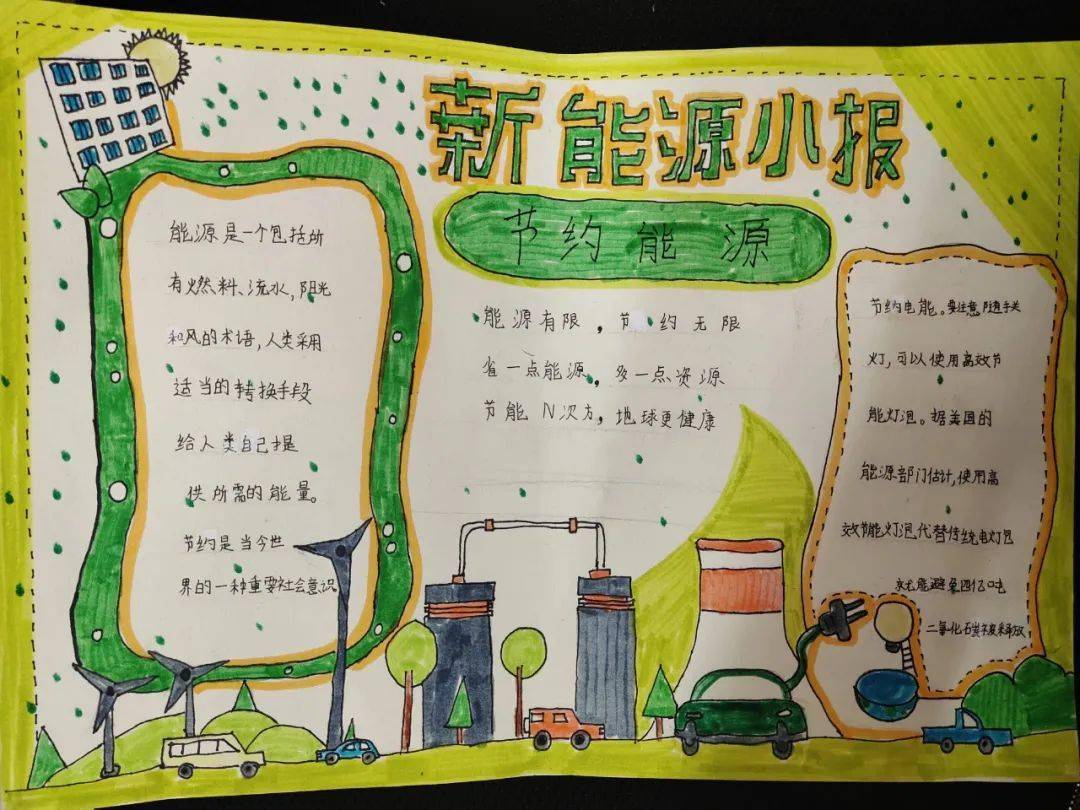 新能源小报
节约能源
能源是一个包括所
有燃料、流水,阳光
和风的术语,人类采用
适当的转换手段
给人类自己提
供所需的能量。
节约是当今世
界的一种重要社会意识
能源有限,节约无限
省一点能源,多一点资源
节能N次方,地球更健康
节约电能。要注意随手关
灯,可以使用高效节
能灯泡。据美国的
能源部门估计,使用高
效节能灯泡代替传统电灯泡
就能避免四亿吨
二氧化碳被释放